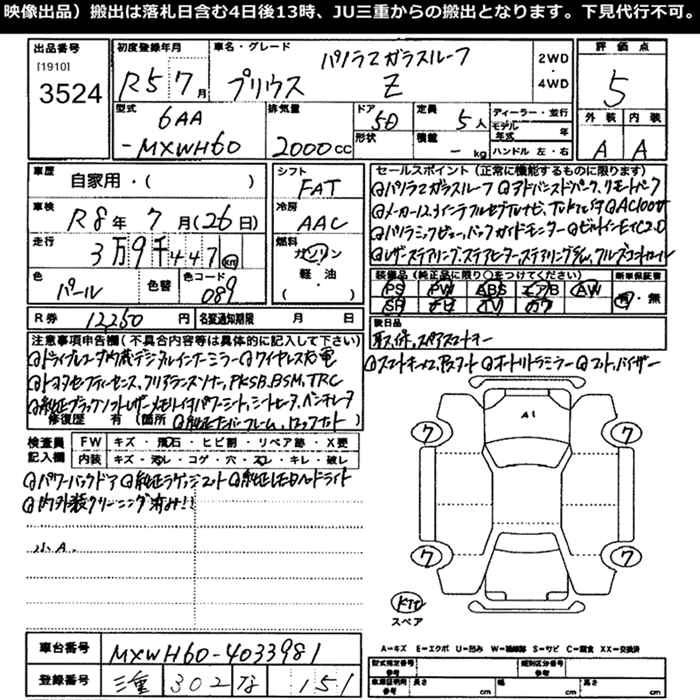 映像出品）搬出は落札日含む4日後13時、JU三重からの搬出となります。下見代行不可。
出品番号
[1910]
3524
初度登録年月
R5 7月
車名・グレード
パノラマガラスルーフ
プリウス Z
2WD
・
4WD
評価点
5
外装 内装
A A
型式
6AA
-MXWH60
排気量
2000cc
ドア
形状
5D
定員
5人
積載
- kg
ディーラー・並行
モデル年式 年
ハンドル 左・右
車歴
自家用・（ ）
車検
R8年 7月（26日）
走行
3万9千447km
色
パール
色替
色コード
089
シフト
FAT
冷房
AAC
燃料
ガソリン
軽・油
（ ）
セールスポイント（正常に機能するものに限ります）
◎パノラマガラスルーフ ◎アドバンストパーク、リモートパーク
◎メーカー12.3インチフルセグTVナビ、
◎AC100V
◎パノラミックビュー、バックガイドモニター ◎ビルトインETC2.0
◎レザーステアリング、ステアヒーター、
装備品（純正品に限り〇をつけてください）
PS PW ABS エアB AW
SR ナビ TV カワ
新車保証書
有・無
R券 12250円
名変通知期限 月 日
後日品
取説、スペアスマートキー
注意事項申告欄（不具合内容等は具体的に記入して下さい）
◎ドライブレコーダ内蔵デジタルインナーミラー ◎ワイヤレス充電
◎トヨタセーフティセンス、クリアランスソナー、PKSB、BSM、TRC
◎純正ブラックソフトレザー、メモリ付パワーシート、シートヒータ、ベンチレータ
修復歴 有（箇所
◎純正ナンバーフレーム、ロックナット
◎スマートキー×2、Pスタート ◎オートリトラミラー ◎マット、バイザー
検査員
記入欄
FW キズ・飛石・ヒビ割・リペア跡・X要
内装 キズ・汚レ・コゲ・穴・スレ・キレ・破レ
◎パワーバックドア ◎純正ラゲッジマット ◎純正LEDヘッドライト
◎内外装クリーニング済み!!
小A.
A1
ワ
ワ
ワ
ワ
Kit
スペア
車台番号 MXWH60-4033981
登録番号 三重 302 な 151
A＝キズ E＝エクボ U＝凹み W＝補修跡 S＝サビ C＝腐食 XX＝交換済
型式指定番号
類別区分番号
車庫証明用寸法
長さ cm
幅 cm
高さ cm